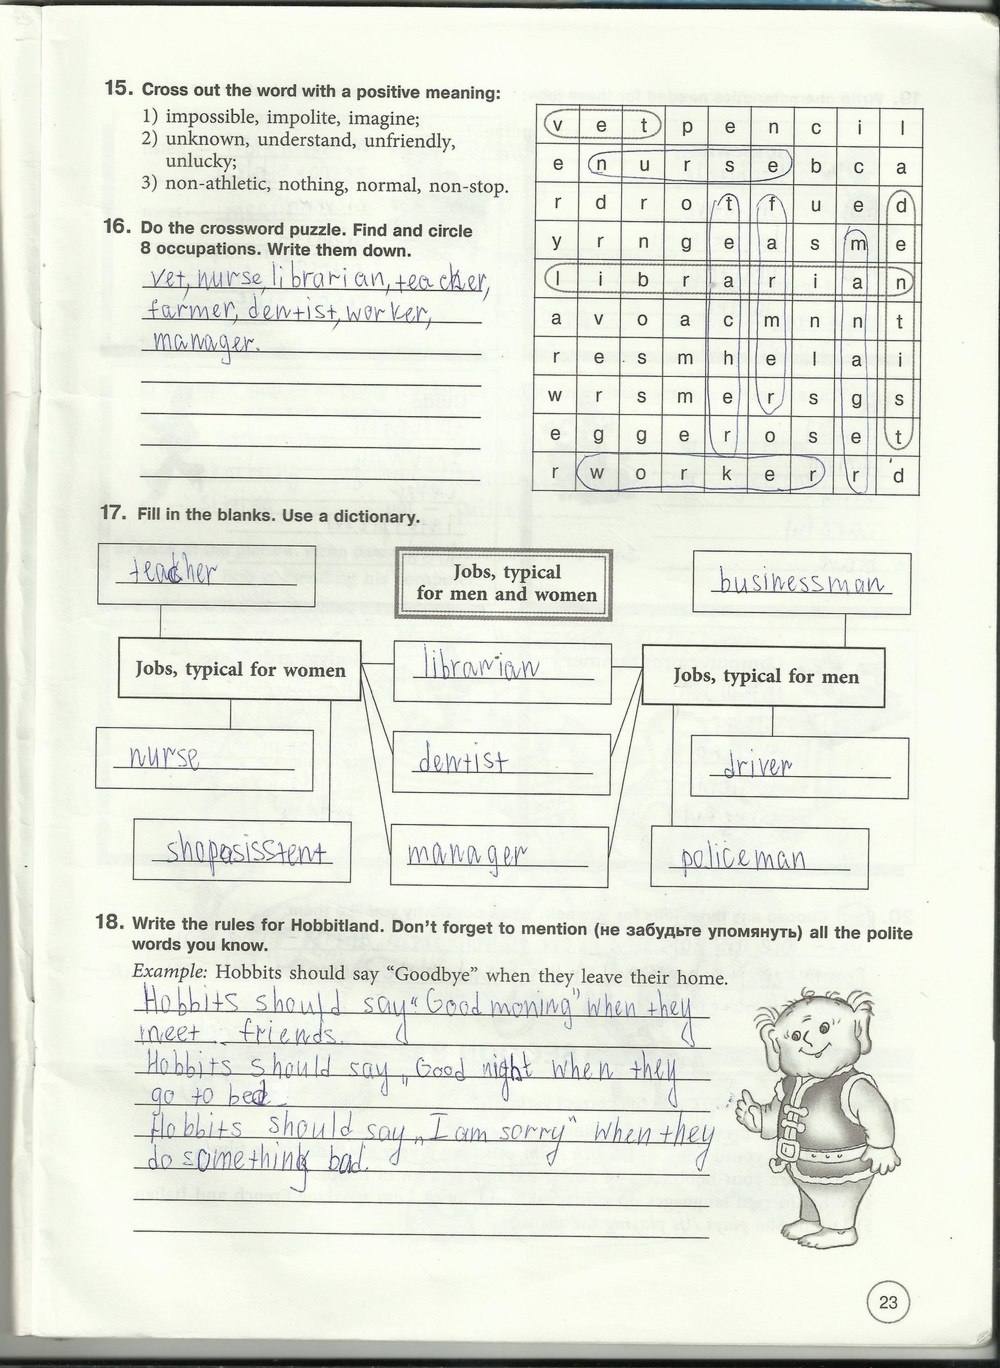 15. Cross out the word with a positive meaning:
1) impossible, impolite, imagine;
2) unknown, understand, unfriendly,
unlucky;
3) non-athletic, nothing, normal, non-stop.
16. Do the crossword puzzle. Find and circle
8 occupations. Write them down.
vet, nurse, librarian, teacher,
farmer, dentist, worker,
manager.
v e t p e n c i l
e n u r s e b c a
r d r o t f u e d
y r n g e a s m e
l i b r a r i a n
a v o a c m n n t
r e s m h e l a i
w r s m e r s g s
e g g e r o s e t
r w o r k e r r d
17. Fill in the blanks. Use a dictionary.
teacher
Jobs, typical
for men and women
businessman
Jobs, typical for women
librarian
Jobs, typical for men
nurse
dentist
driver
shopasisstent
manager
policeman
18. Write the rules for Hobbitland. Don't forget to mention (не забудьте упомянуть) all the polite
words you know.
Example: Hobbits should say “Goodbye” when they leave their home.
Hobbits should say “Good moning” when they
meet friends.
Hobbits should say „Good night when they
go to bed.
Hobbits should say „I am sorry” when they
do something bad.
23